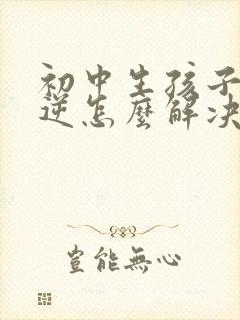 初中生孩子
逆怎麼解决
豈能無心